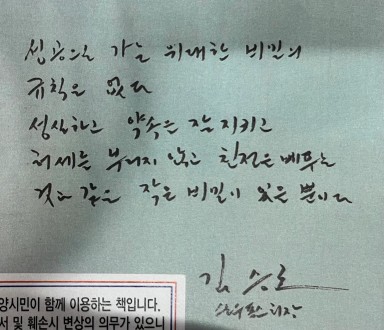 성공으로 가는 위대한 비밀의
규칙은 없다
성실하고 약속은 잘 지키고
허세는 부리지 않고 친절은 베푸는
것과 같은 작은 비밀이 있을 뿐이다
김승호
스노우폭스 회장
양시민이 함께 이용하는 책입니다.
서 및 훼손시 변상의 의무가 있으니